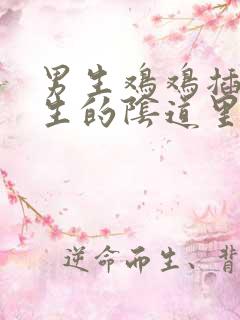 男生鸡鸡插
生的陰道里
逆命而生、背